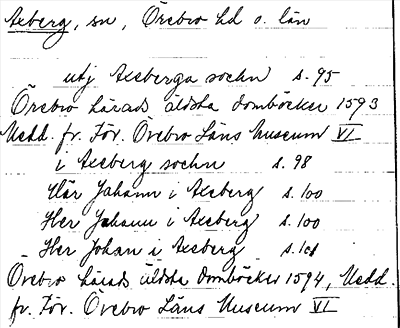 Axberg, sn, Örebro hd o. län
utj Axberga sochn s. 95
Örebro härads äldsta domböcker 1593
Medd. fr. För. Örebro Läns Museum VI
i Axberg sochn s. 98
Här Johann i Axberg s. 100
Her Johann i Axberg s. 100
Her Johan i Axberg s. 101
Örebro härads äldsta domböcker 1594, Medd.
fr. För. Örebro Läns Museum VI